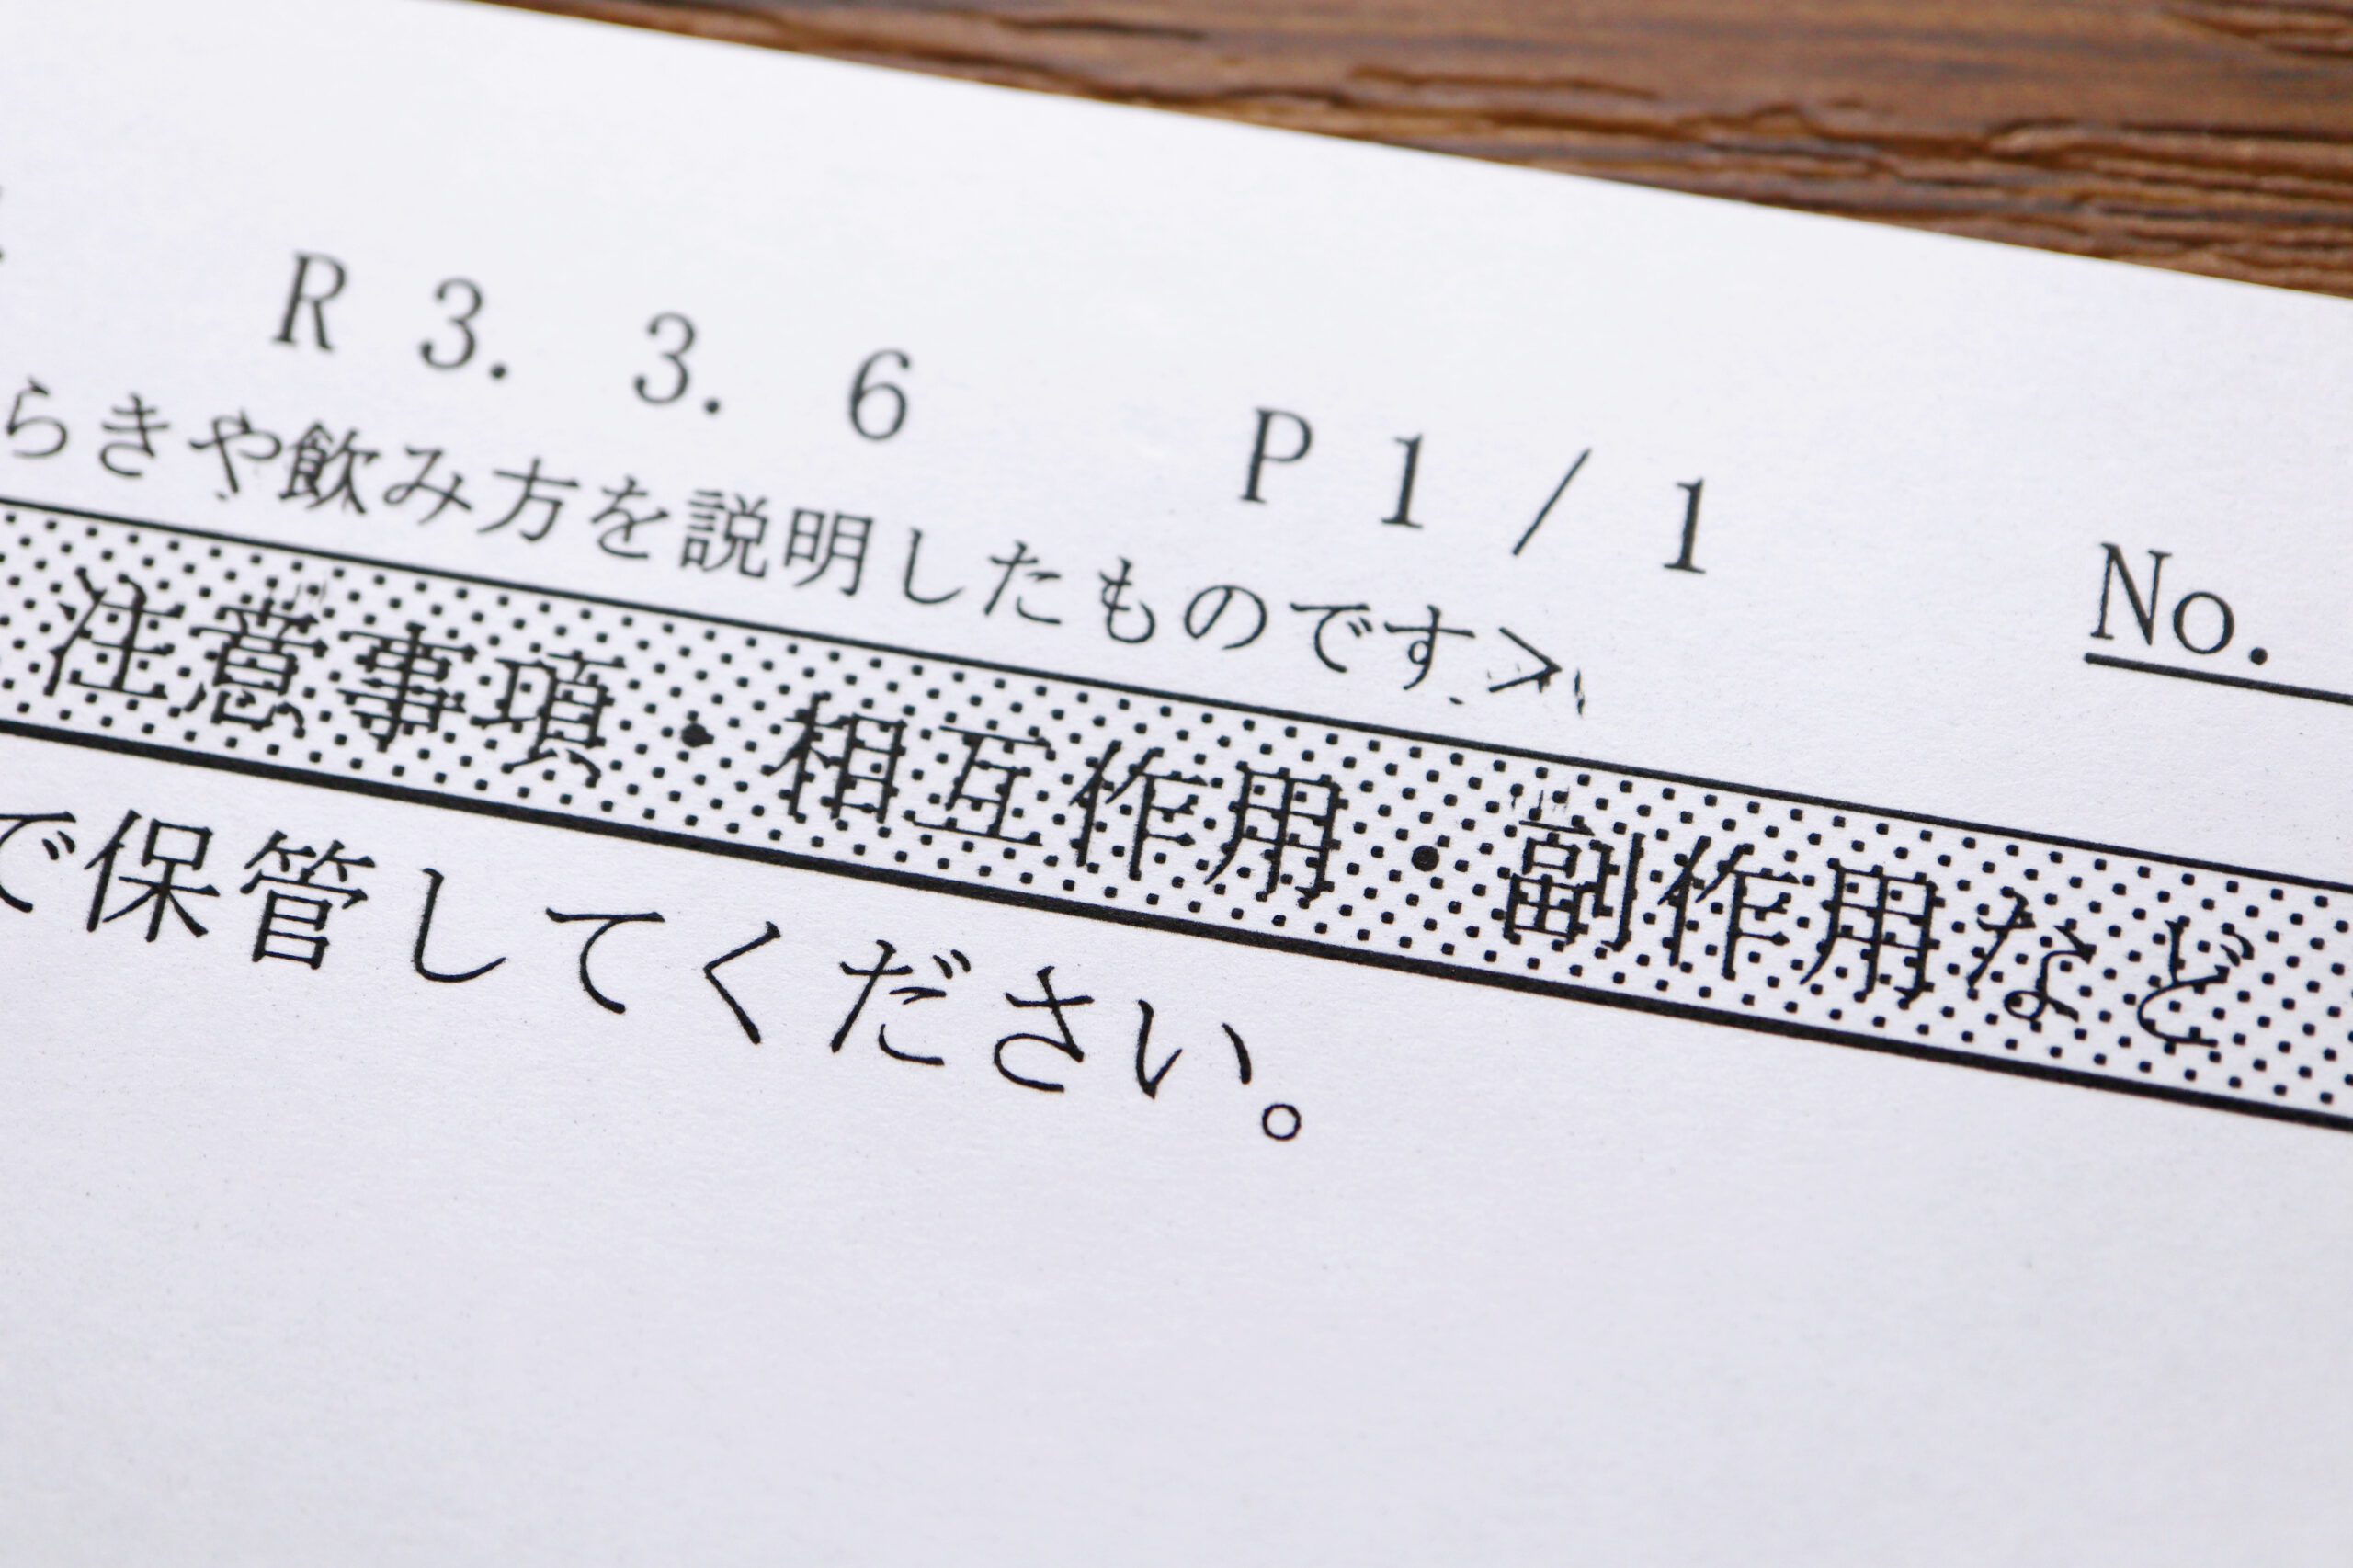 R 3. 3. 6 P 1 / 1 No.
らきや飲み方を説明したものです>
注意事項・相互作用・副作用など
で保管してください。